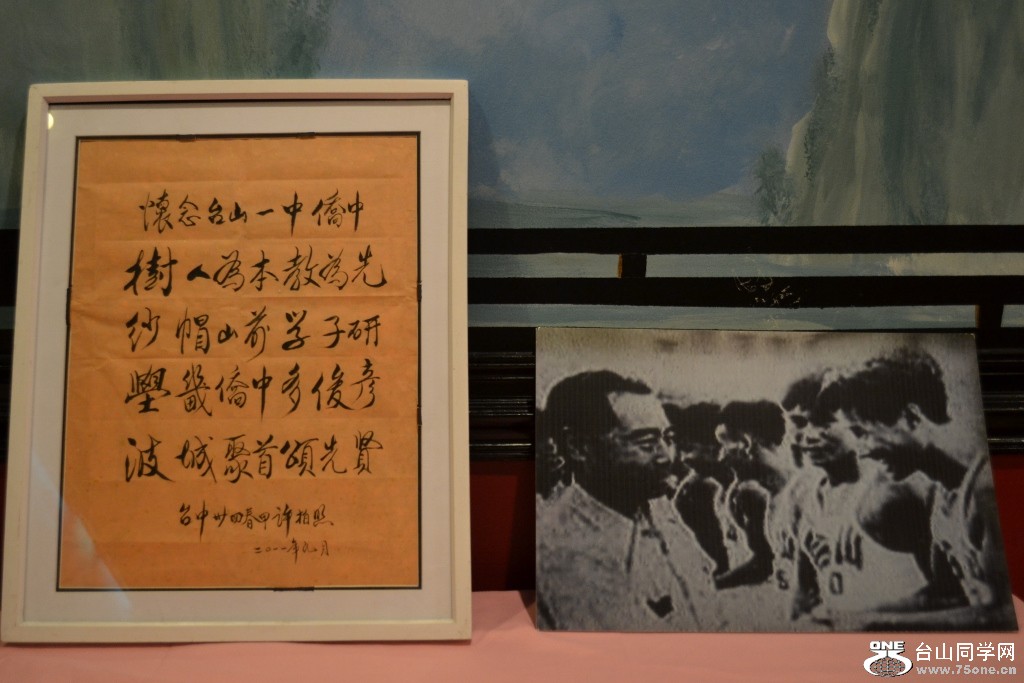 懷念台山一中僑中
樹人為本教為先
紗帽山前学子研
壆畿僑中多俊彥
波城聚首頌先賢
台中廿四春甲許柏照
二〇一一年九月
ONE
台山同学网
www.75one.com